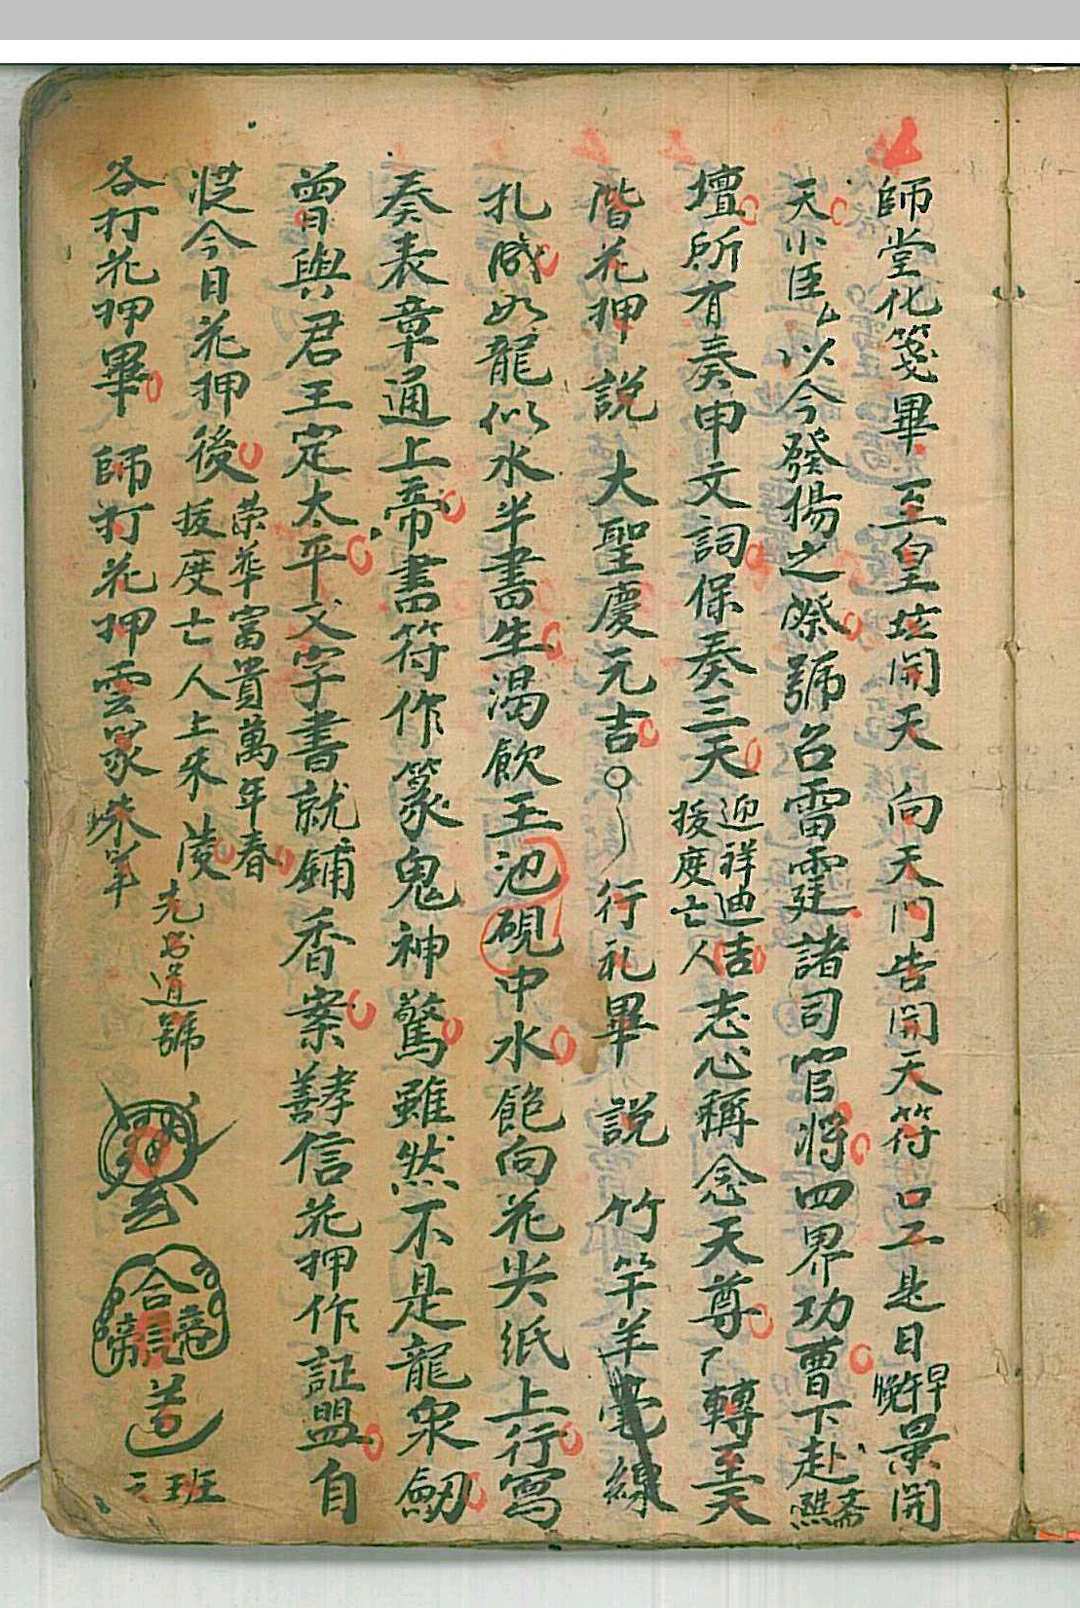 師堂化箋畢至皇壇開天 向天門告開天符口工是日早午晚景開
天小臣以今發揚之際號召雷霆諸司官將四界功曹下赴齋醮
壇所有奏申文詞保奏三天迎祥迪吉拔度亡人志心稱念天尊了轉至天
階花押説 大聖慶元吉 行礼畢 説 竹竿羊毫線
扎咸如龍似水半書生渴飲玉池硯中水飽向花尖紙上行寫
奏表章通上帝書符作篆鬼神驚雖然不是龍泉劒
曽與君王定太平文字書就鋪香案諄信花押作証盟自
從今日花押後榮華富貴萬年春拔度亡人上禾凌
各打花押畢 師打花押雲篆
道號
合
帝
道
三班